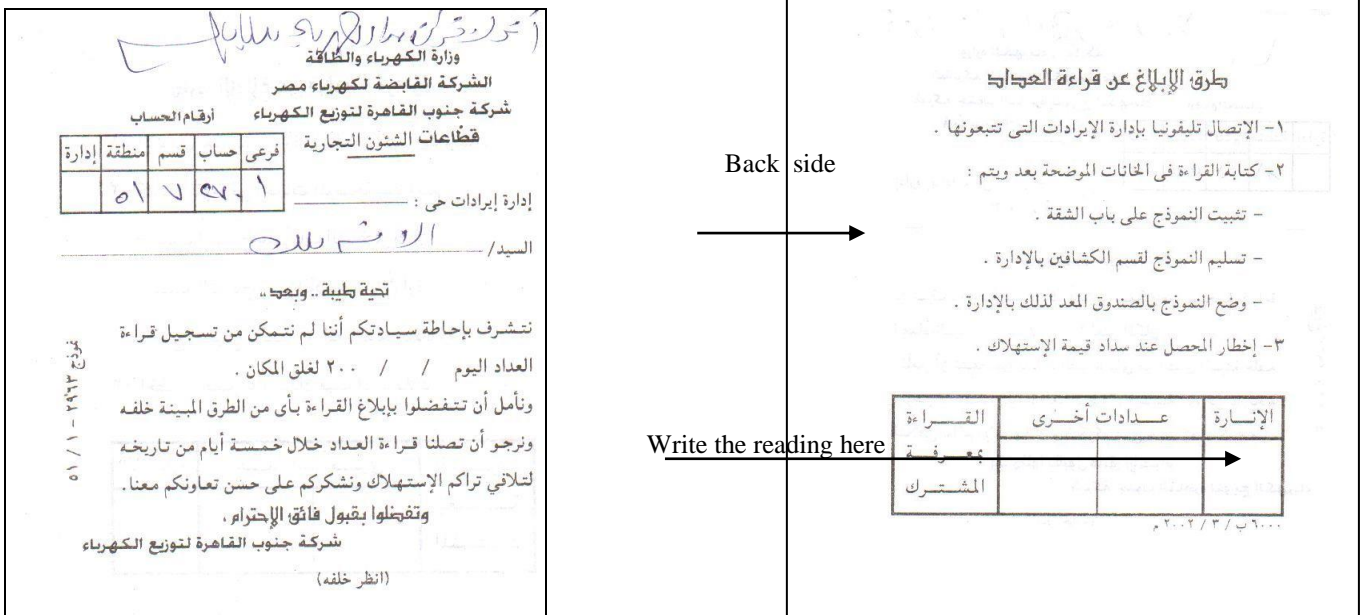 وزارة الكهرباء والطاقة
الشركة القابضة لكهرباء مصر
شركة جنوب القاهرة لتوزيع الكهرباء
قطاعات الشئون التجارية
أرقام الحساب
فرعى حساب قسم منطقة إدارة
١ ٧ ٥١
إدارة إيرادات حى :
السيد/
تحية طيبة .. وبعد ،،
نتشرف بإحاطة سيادتكم أننا لم نتمكن من تسجيل قراءة
العداد اليوم / / ٢٠٠ لغلق المكان .
ونأمل أن تتفضلوا بإبلاغ القراءة بأى من الطرق المبينة خلفه
ونرجو أن تصلنا قراءة العداد خلال خمسة أيام من تاريخه
لتلافي تراكم الإستهلاك ونشكركم على حسن تعاونكم معنا .
وتفضلوا بقبول فائق الإحترام ،
شركة جنوب القاهرة لتوزيع الكهرباء
(انظر خلفه)
نموذج ٢٩٦٣ - ١ / ٥١
Back side
Write the reading here
طرق الإبلاغ عن قراءة العداد
١- الإتصال تليفونيا بإدارة الإيرادات التى تتبعونها .
٢- كتابة القراءة فى الخانات الموضحة بعد ويتم :
- تثبيت النموذج على باب الشقة .
- تسليم النموذج لقسم الكشافين بالإدارة .
- وضع النموذج بالصندوق المعد لذلك بالإدارة .
٣- إخطار المحصل عند سداد قيمة الإستهلاك .
الإنــارة عــدادات أخــرى القــراءة
بمعــرفــة
المشــتــرك
٦٠٠٠ ب / ٣ / ٢٠٠٢ م